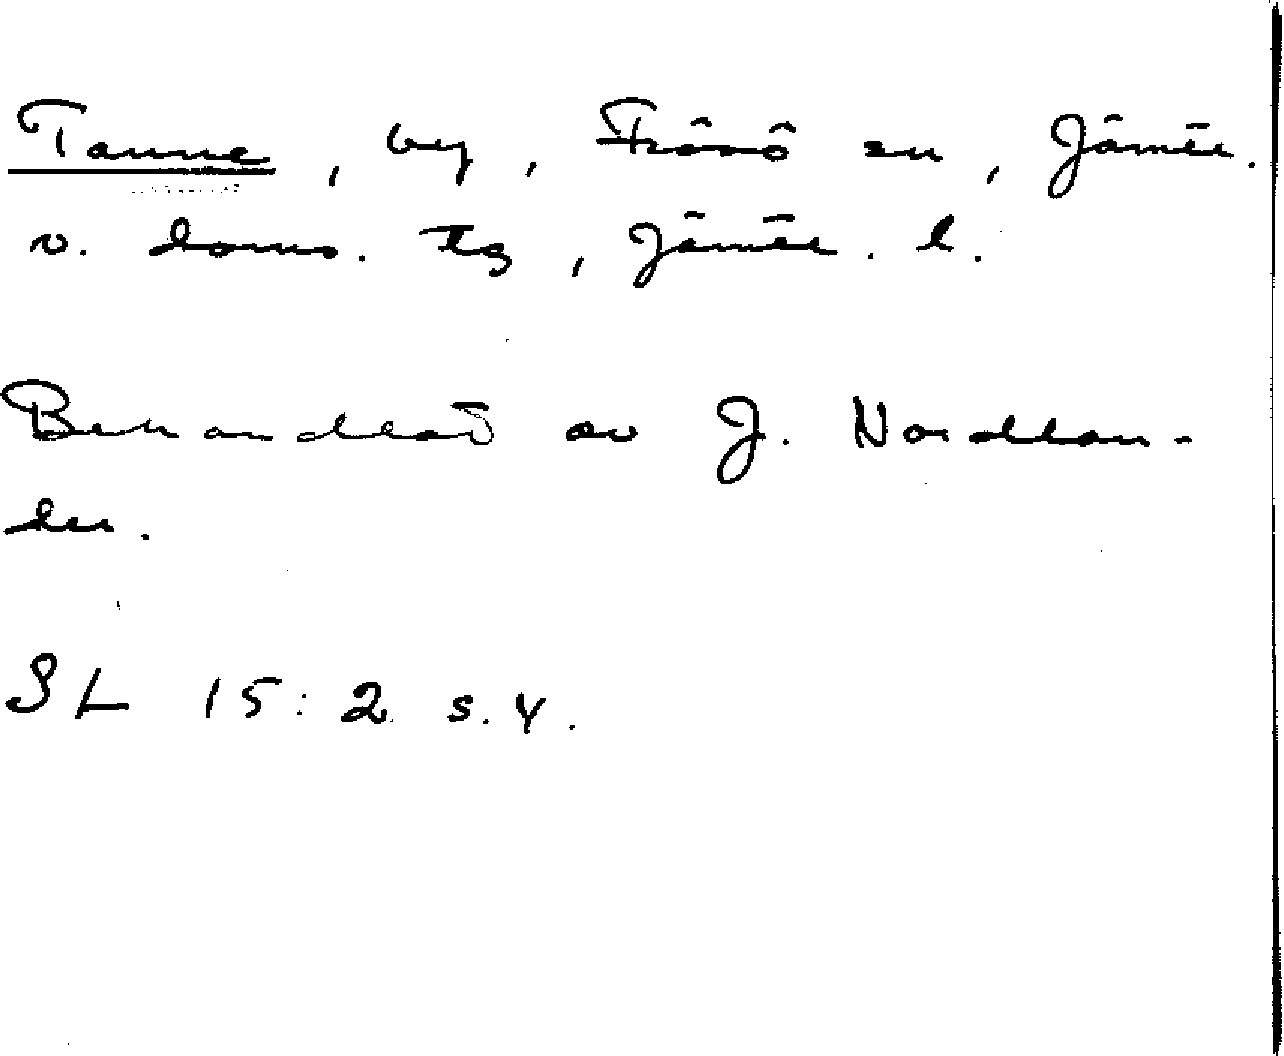 Tanne, by, Frösö sn, Jämtl.
v. doms. tg, Jämtl. l.
Behandlad av J. Nordlan-
der.
SL 15:2 s. 4.